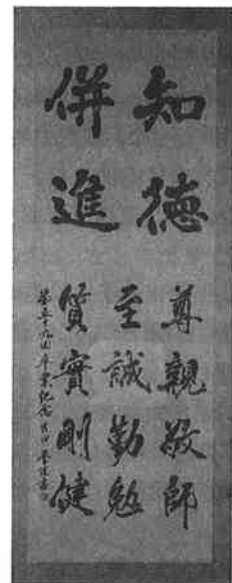 知德
併進
尊親敬師
至誠勤勉
質實剛健
第五十九回卒業紀念